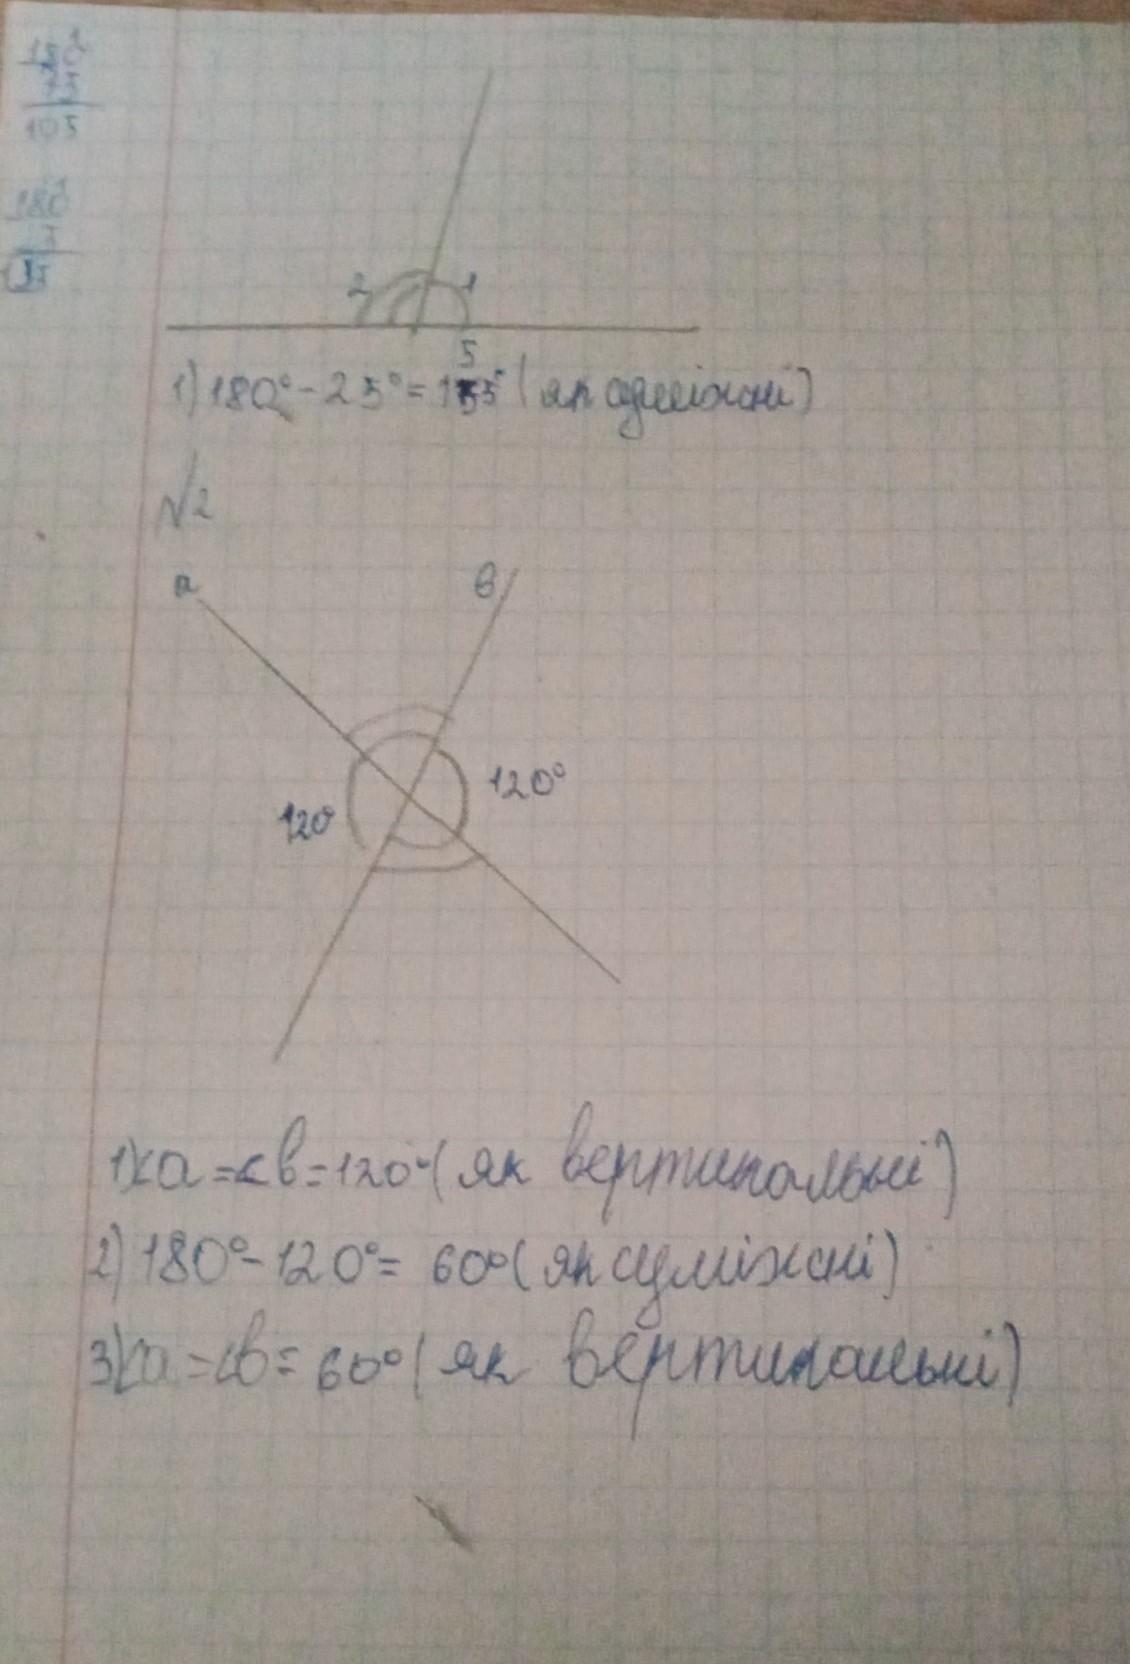 180
75
105
180
2 1
5
1) 180° - 25° = 155° (як суміжні)
√2
а в
120°
120°
1) <а = <в = 120° (як вертикальні)
2) 180° - 120° = 60° (як суміжні)
3) <а = <в = 60° (як вертикальні)